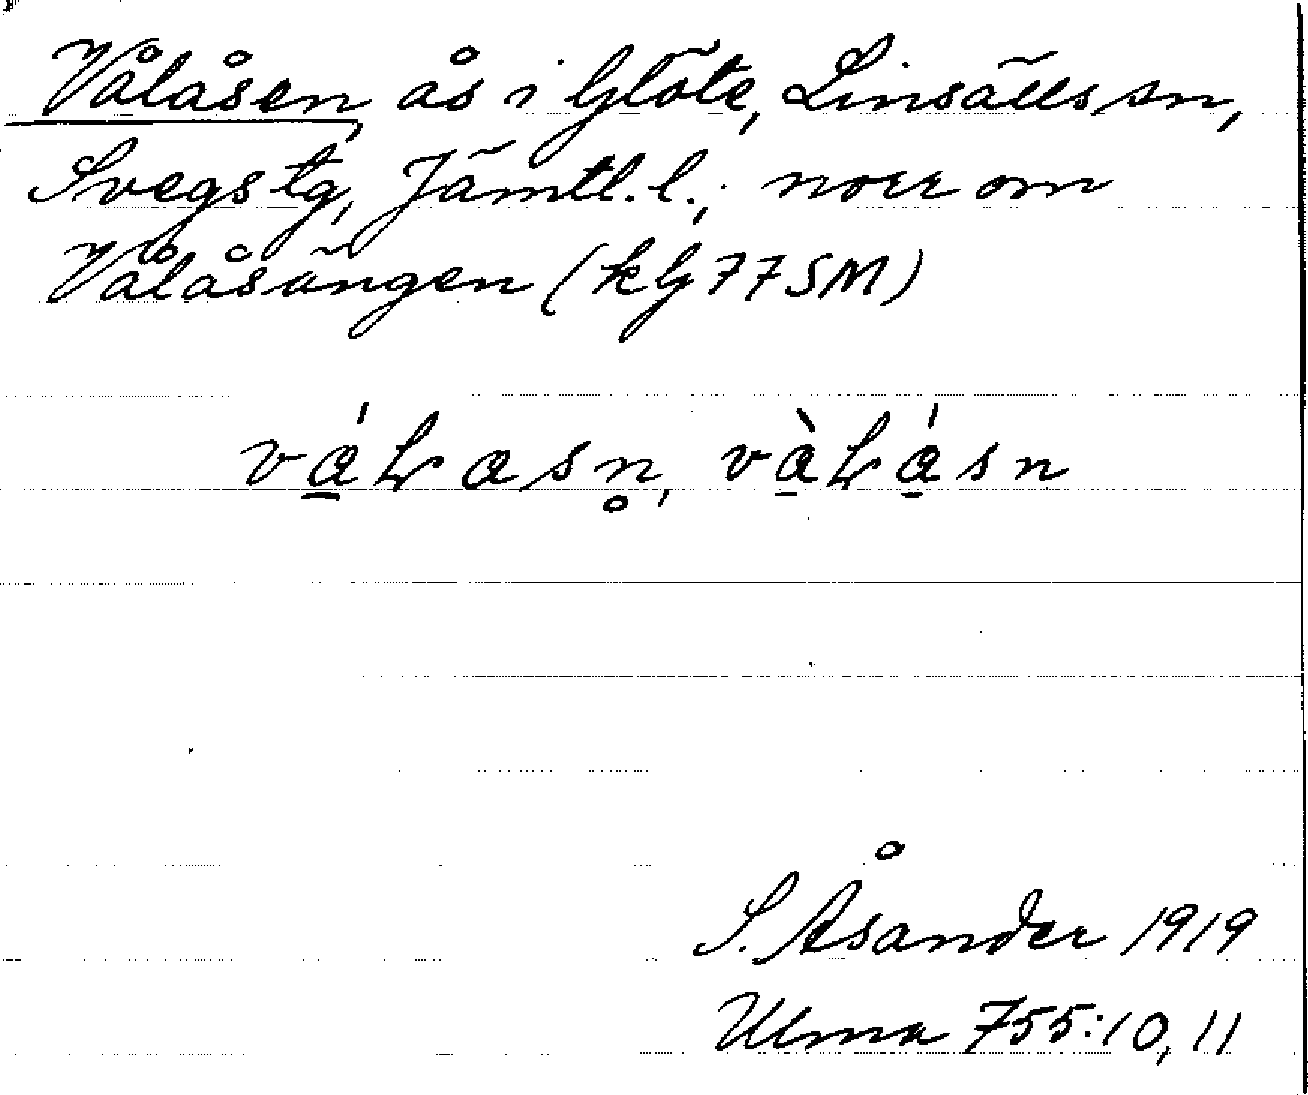 Vålåsen, ås i Glöte, Linsälls sn,
Svegs tg, Jämtl. l.; norr om
Vålåsängen (k G 77 SM)
vá̱Lasn̥, và̱Lá̱sn
S. Åsander 1919
Ulma 755:10, 11